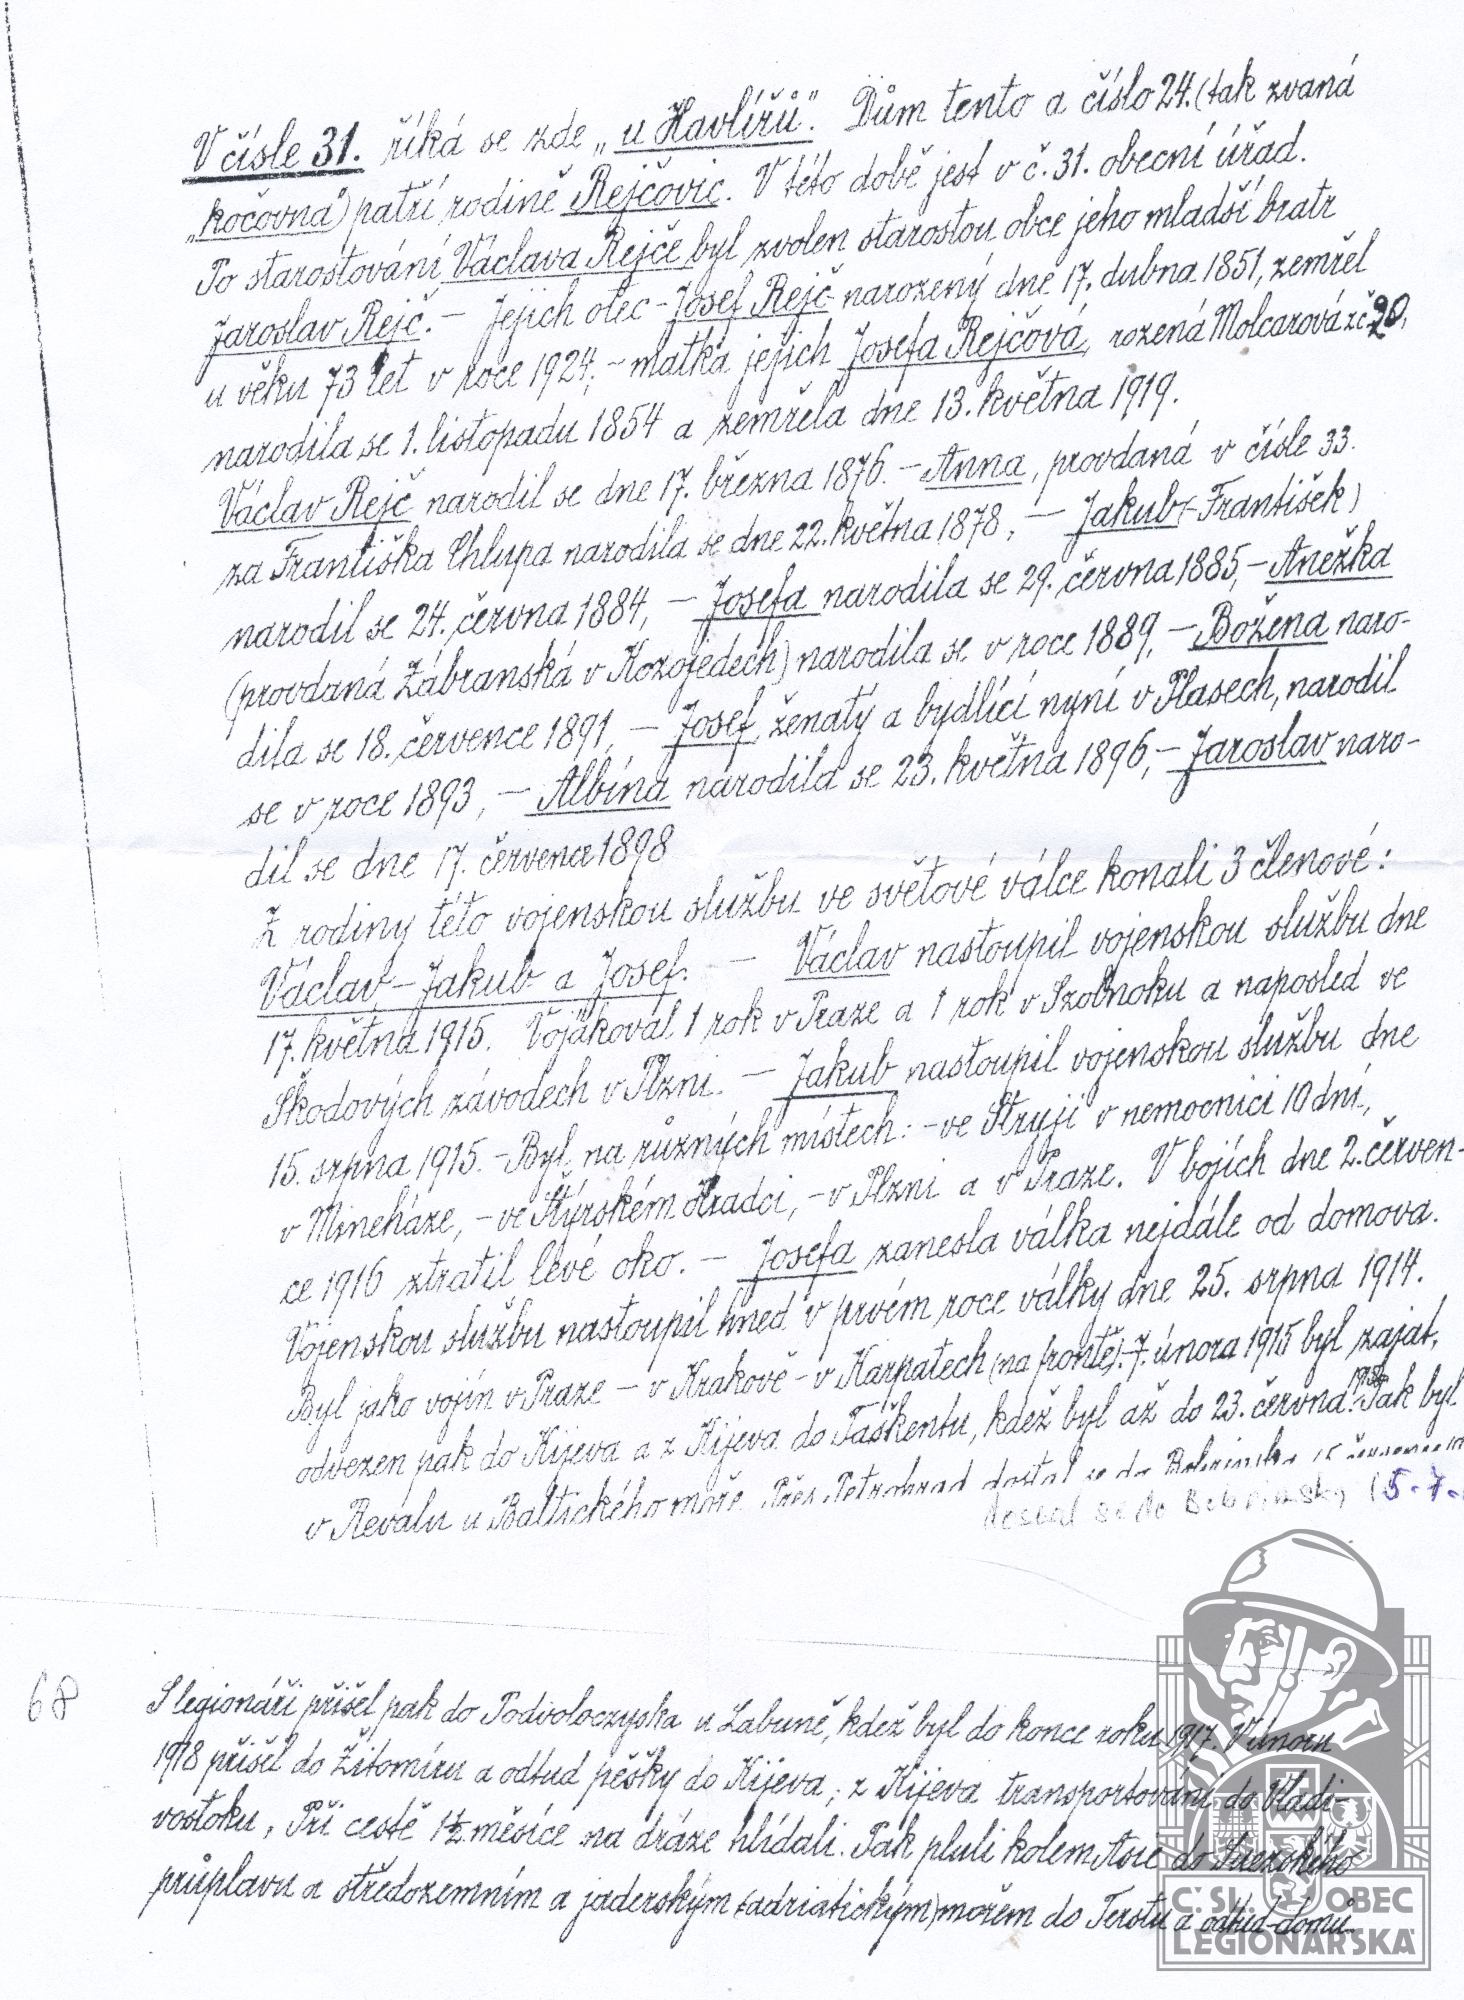 V čísle 31. říká se zde „u Havlířů". Dům tento a číslo 24. (tak zvaná
„kočovna") patří rodině Rejčovic. V této době jest v č. 31. obecní úřad.
Po starostování Václava Rejče byl zvolen starostou obce jeho mladší bratr
Jaroslav Rejč. – Jejich otec – Josef Rejč narozený dne 17. dubna 1851, zemřel
u věku 73 let v roce 1924, – matka jejich Josefa Rejčová, rozená Molcarová z č. 20,
narodila se 1. listopadu 1854 a zemřela dne 13. května 1919.
Václav Rejč narodil se dne 17. března 1876. – Anna, provdaná v čísle 33.
za Františka Chlupa narodila se dne 22. května 1878, – Jakub (František)
narodil se 24. června 1884, – Josefa narodila se 29. června 1885, – Anežka
(provdaná Zábranská v Kozojedech) narodila se v roce 1889, – Božena naro-
dila se 18. července 1891, – Josef, ženatý a bydlící nyní v Plasech, narodil
se v roce 1893, – Albína narodila se 23. května 1896, – Jaroslav naro-
dil se dne 17. července 1898
Z rodiny této vojenskou službu ve světové válce konali 3 členové:
Václav – Jakub a Josef. – Václav nastoupil vojenskou službu dne
17. května 1915. Vojákoval 1 rok v Praze a 1 rok v Szolnoku a naposled ve
Škodových závodech v Plzni. – Jakub nastoupil vojenskou službu dne
15. srpna 1915. – Byl na různých místech: – ve Stryji v nemocnici 10 dní,
v Mineháze, – ve Štýrském Hradci, – v Plzni a v Praze. V bojích dne 2. červen-
ce 1916 ztratil levé oko. – Josefa zanesla válka nejdále od domova.
Vojenskou službu nastoupil hned v prvém roce války dne 25. srpna 1914.
Byl jako vojín v Praze – v Krakově – v Karpatech (na frontě). 7. února 1915 byl zajat,
odvezen pak do Kijeva a z Kijeva do Taškentu, kdež byl až do 23. června. Pak byl
v Revalu u Baltického moře. Přes Petrohrad dostal se do Bobrinska
dostal se do Bobrinsky (5.7.
68
S legionáři přišel pak do Podvoloczyska u Labuně, kdež byl do konce roku 1917. V únoru
1918 přišel do Žitomíru a odtud pěšky do Kijeva; z Kijeva transportováni do Vladi-
vostoku. Při cestě 1½ měsíce na dráze hlídali. Pak pluli kolem Asie do Suezského
průplavu a středozemním a jaderským (adriatickým) mořem do Terstu a odtud domů.
Č. SL. OBEC
LEGIONÁŘSKÁ